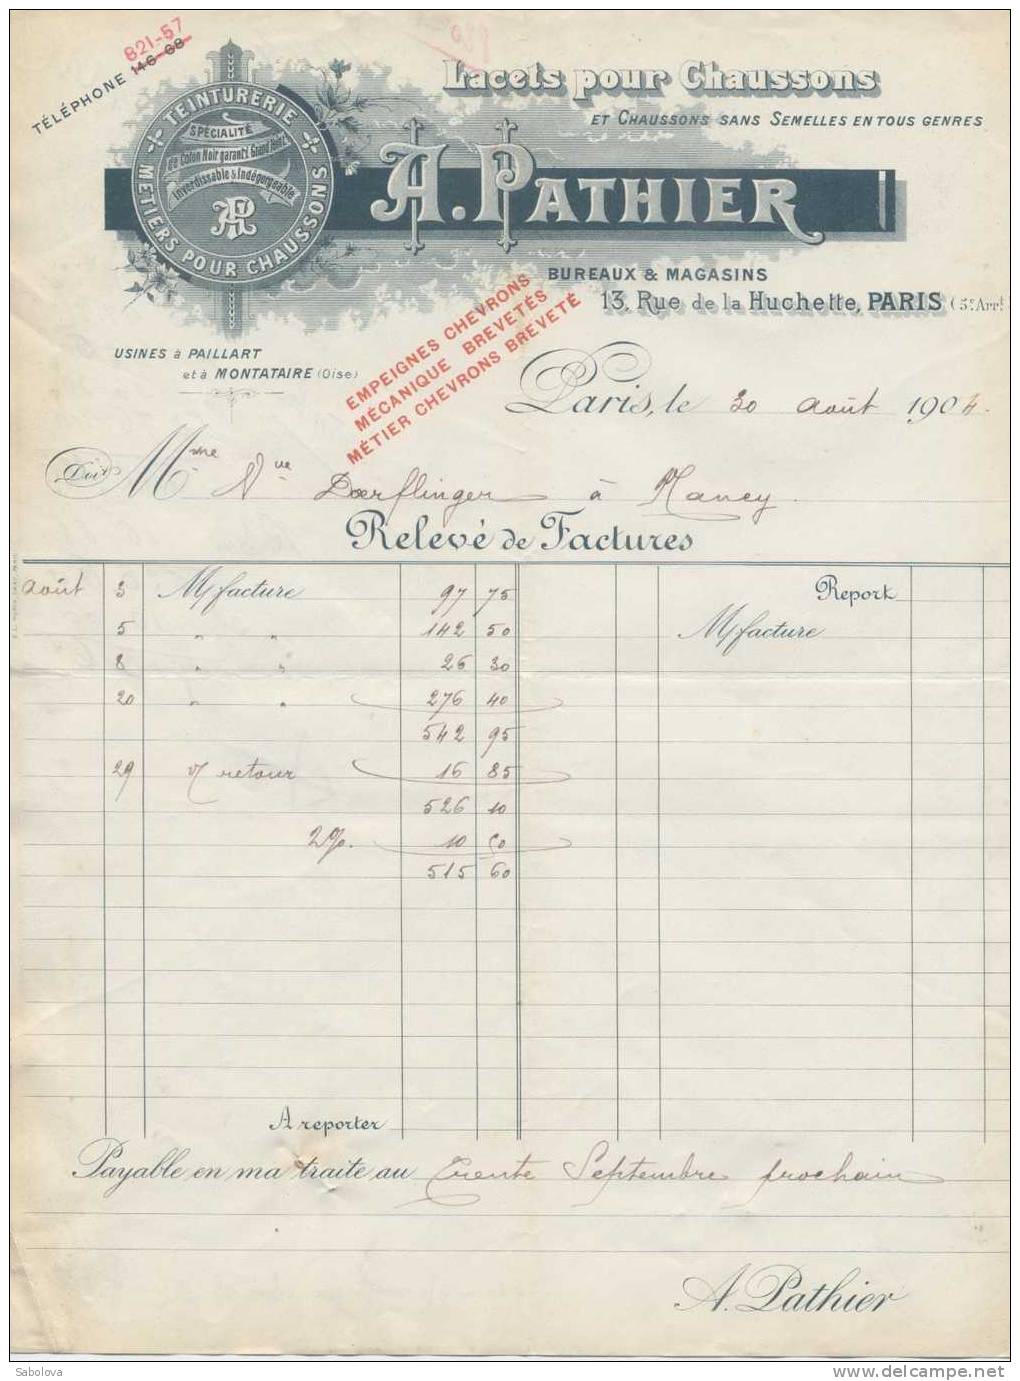 821-57
TÉLÉPHONE 146-68
Lacets pour Chaussons
ET CHAUSSONS SANS SEMELLES EN TOUS GENRES
TEINTURERIE
MÉTIERS POUR CHAUSSONS
SPÉCIALITÉ
de Coton Noir garanti Grand Teint
Inverdissable & Indégorgeable
AP
A. PATHIER
BUREAUX & MAGASINS
13, Rue de la Huchette, PARIS (5e Arrt)
EMPEIGNES CHEVRONS
MÉCANIQUE BREVETÉS
MÉTIER CHEVRONS BREVETÉ
USINES à PAILLART
et à MONTATAIRE (Oise)
Paris, le 30 août 1904.
Doit Mme Vve Doerflinger à Nancy.
Relevé de Factures
août 3 M/ facture 97 75 Report
5 " " 142 50 M/ facture
8 " " 26 30
20 " " 276 40
542 95
29 v/ retour 16 85
526 10
2%. 10 50
515 60
A reporter
Payable en ma traite au Trente Septembre prochain
A. Pathier
Sabolova
www.delcampe.net